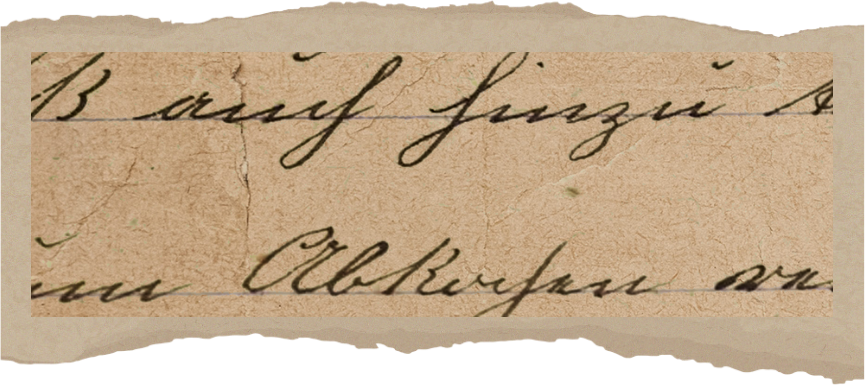 auch hinzu
Abkochen